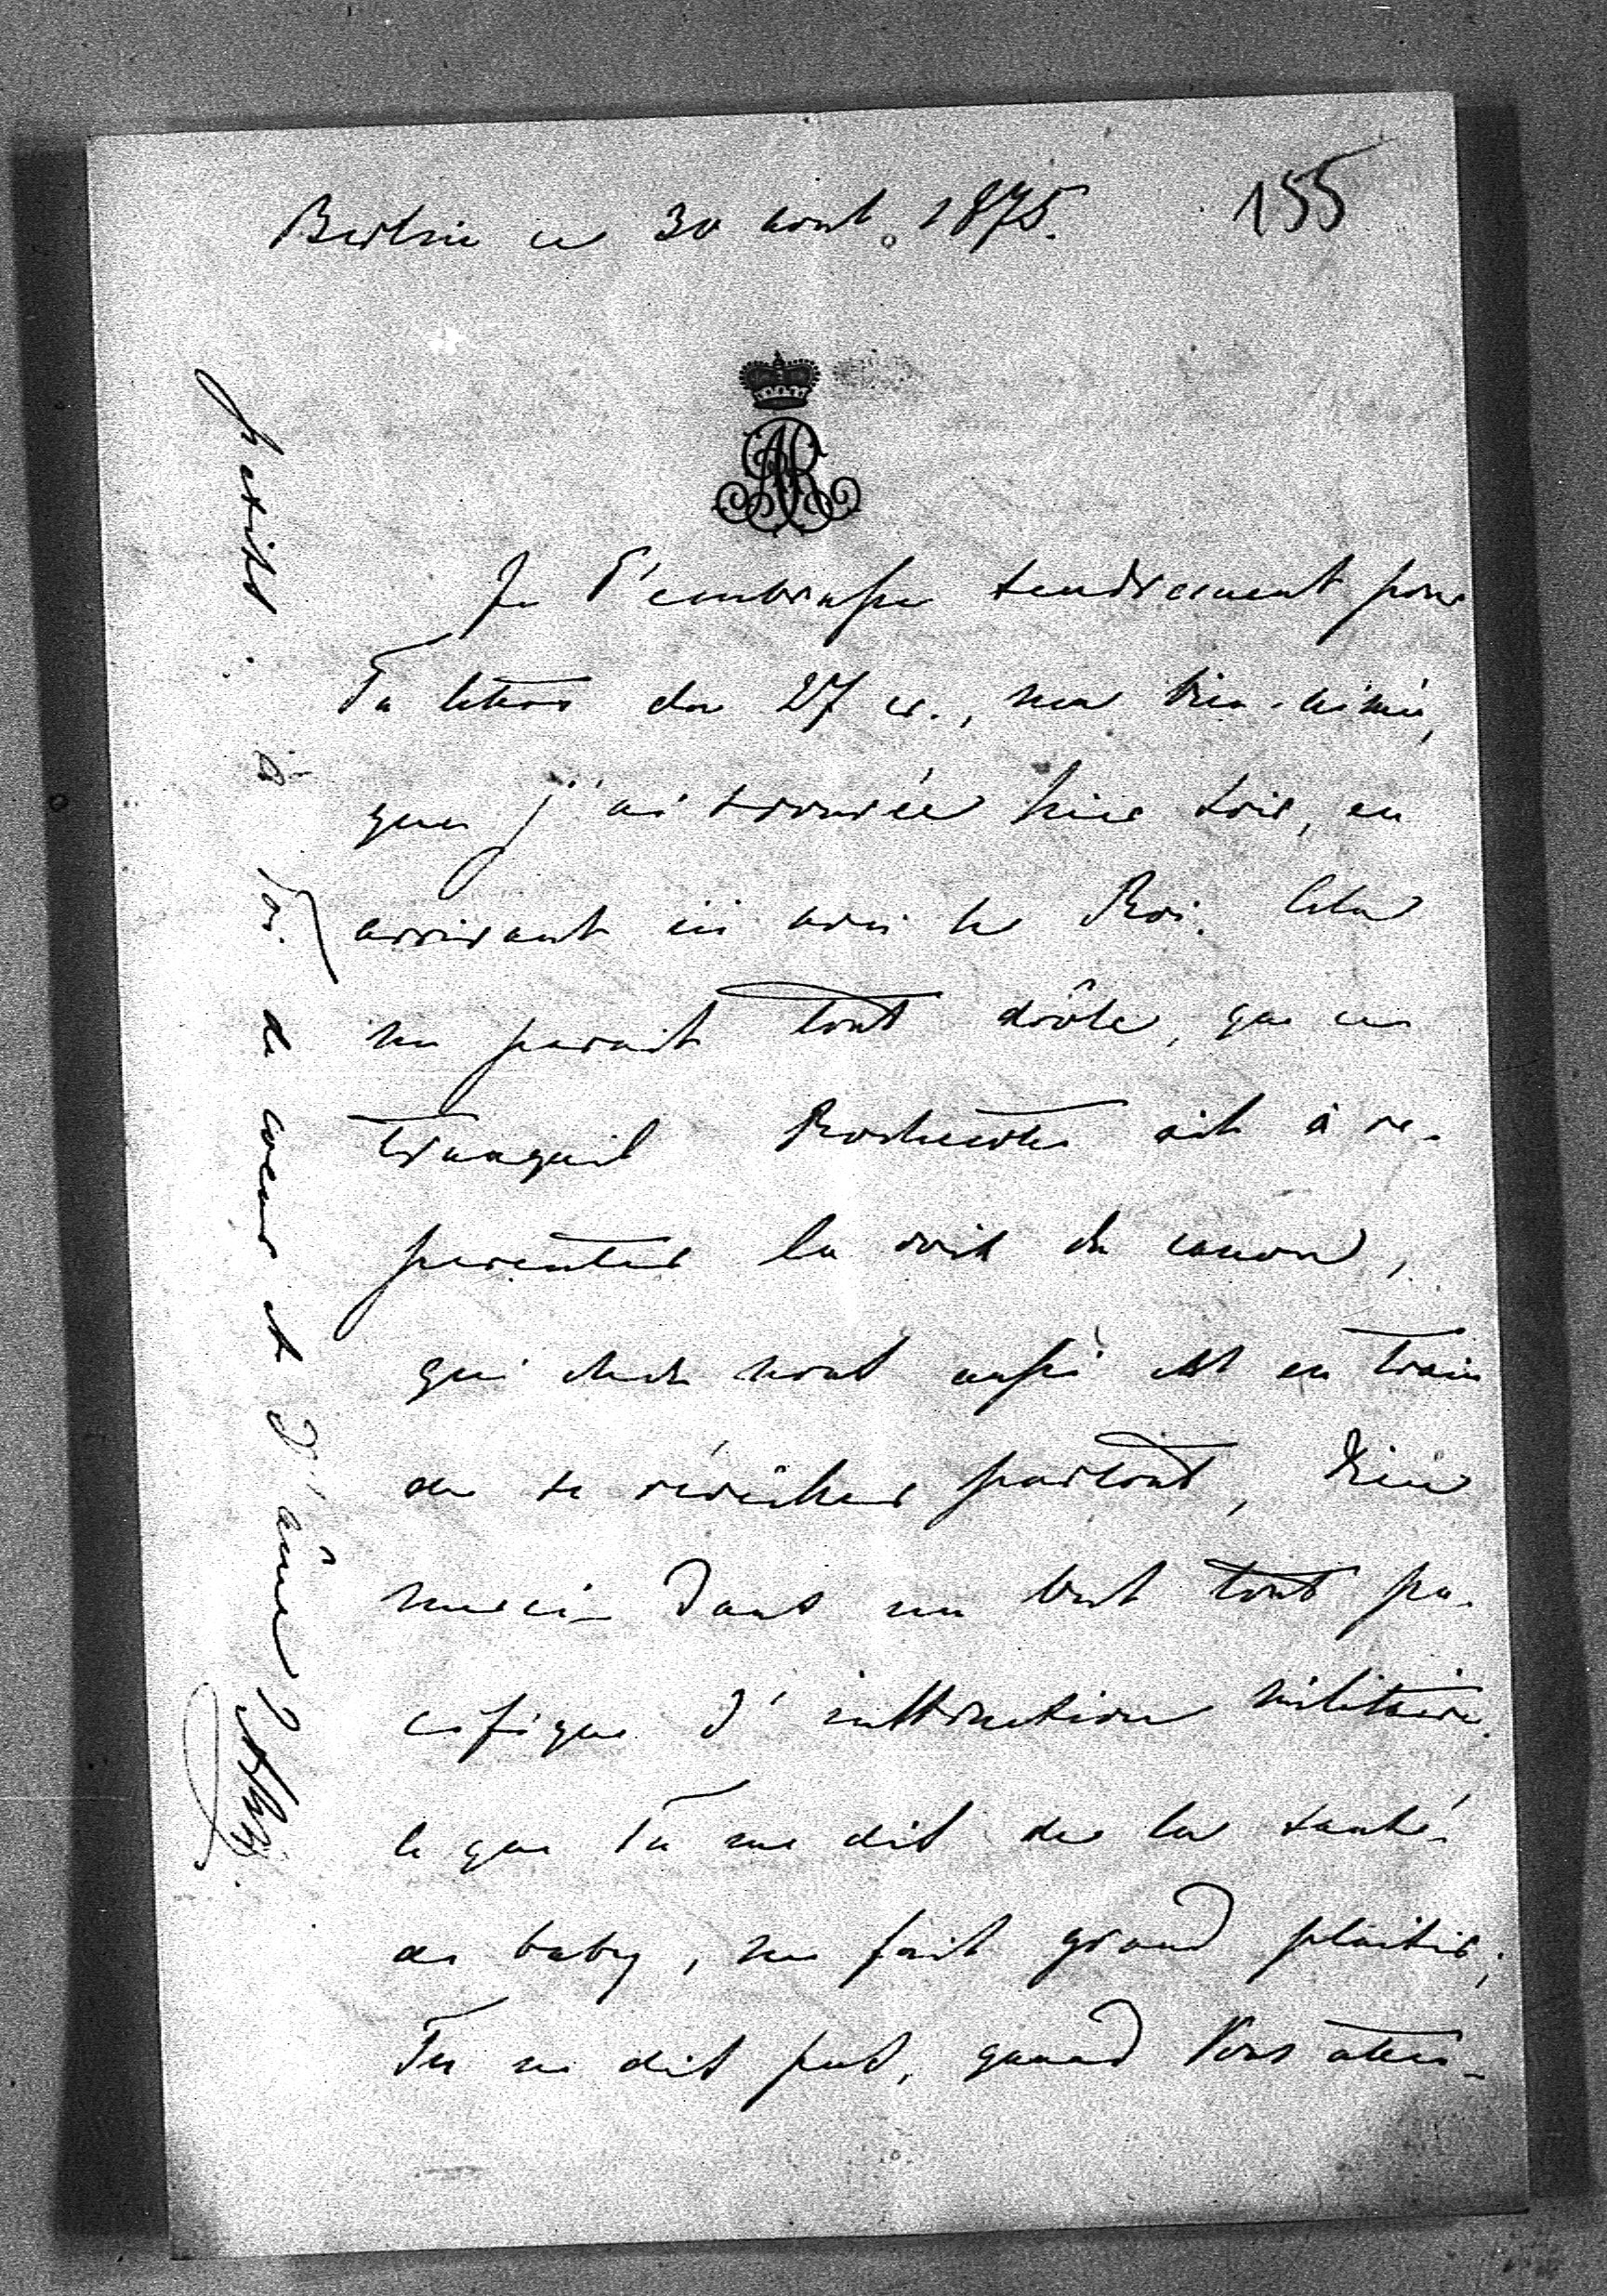 Berlin ce 30 aout 1875.
155
AR
Je T'embrasse tendrement pour
Ta lettre du 27 cr., ma bien-aimée,
que j'ai trouvée hier soir, en
arrivant ici avec le Roi. Cela
me parait tout drôle, que ce
tranquil Rochecotte ait à re-
percuter la voix du canon,
qui chez nous aussi est en train
de se réveiller partout, Dieu
merci dans un but tout pa-
cifique d'instruction militaire.
Ce que Tu me dis de la santé
de baby, me fait grand plaisir;
Tu ne dis pas, quand Vous atten-
petites. à Vos. de coeur et d'âme